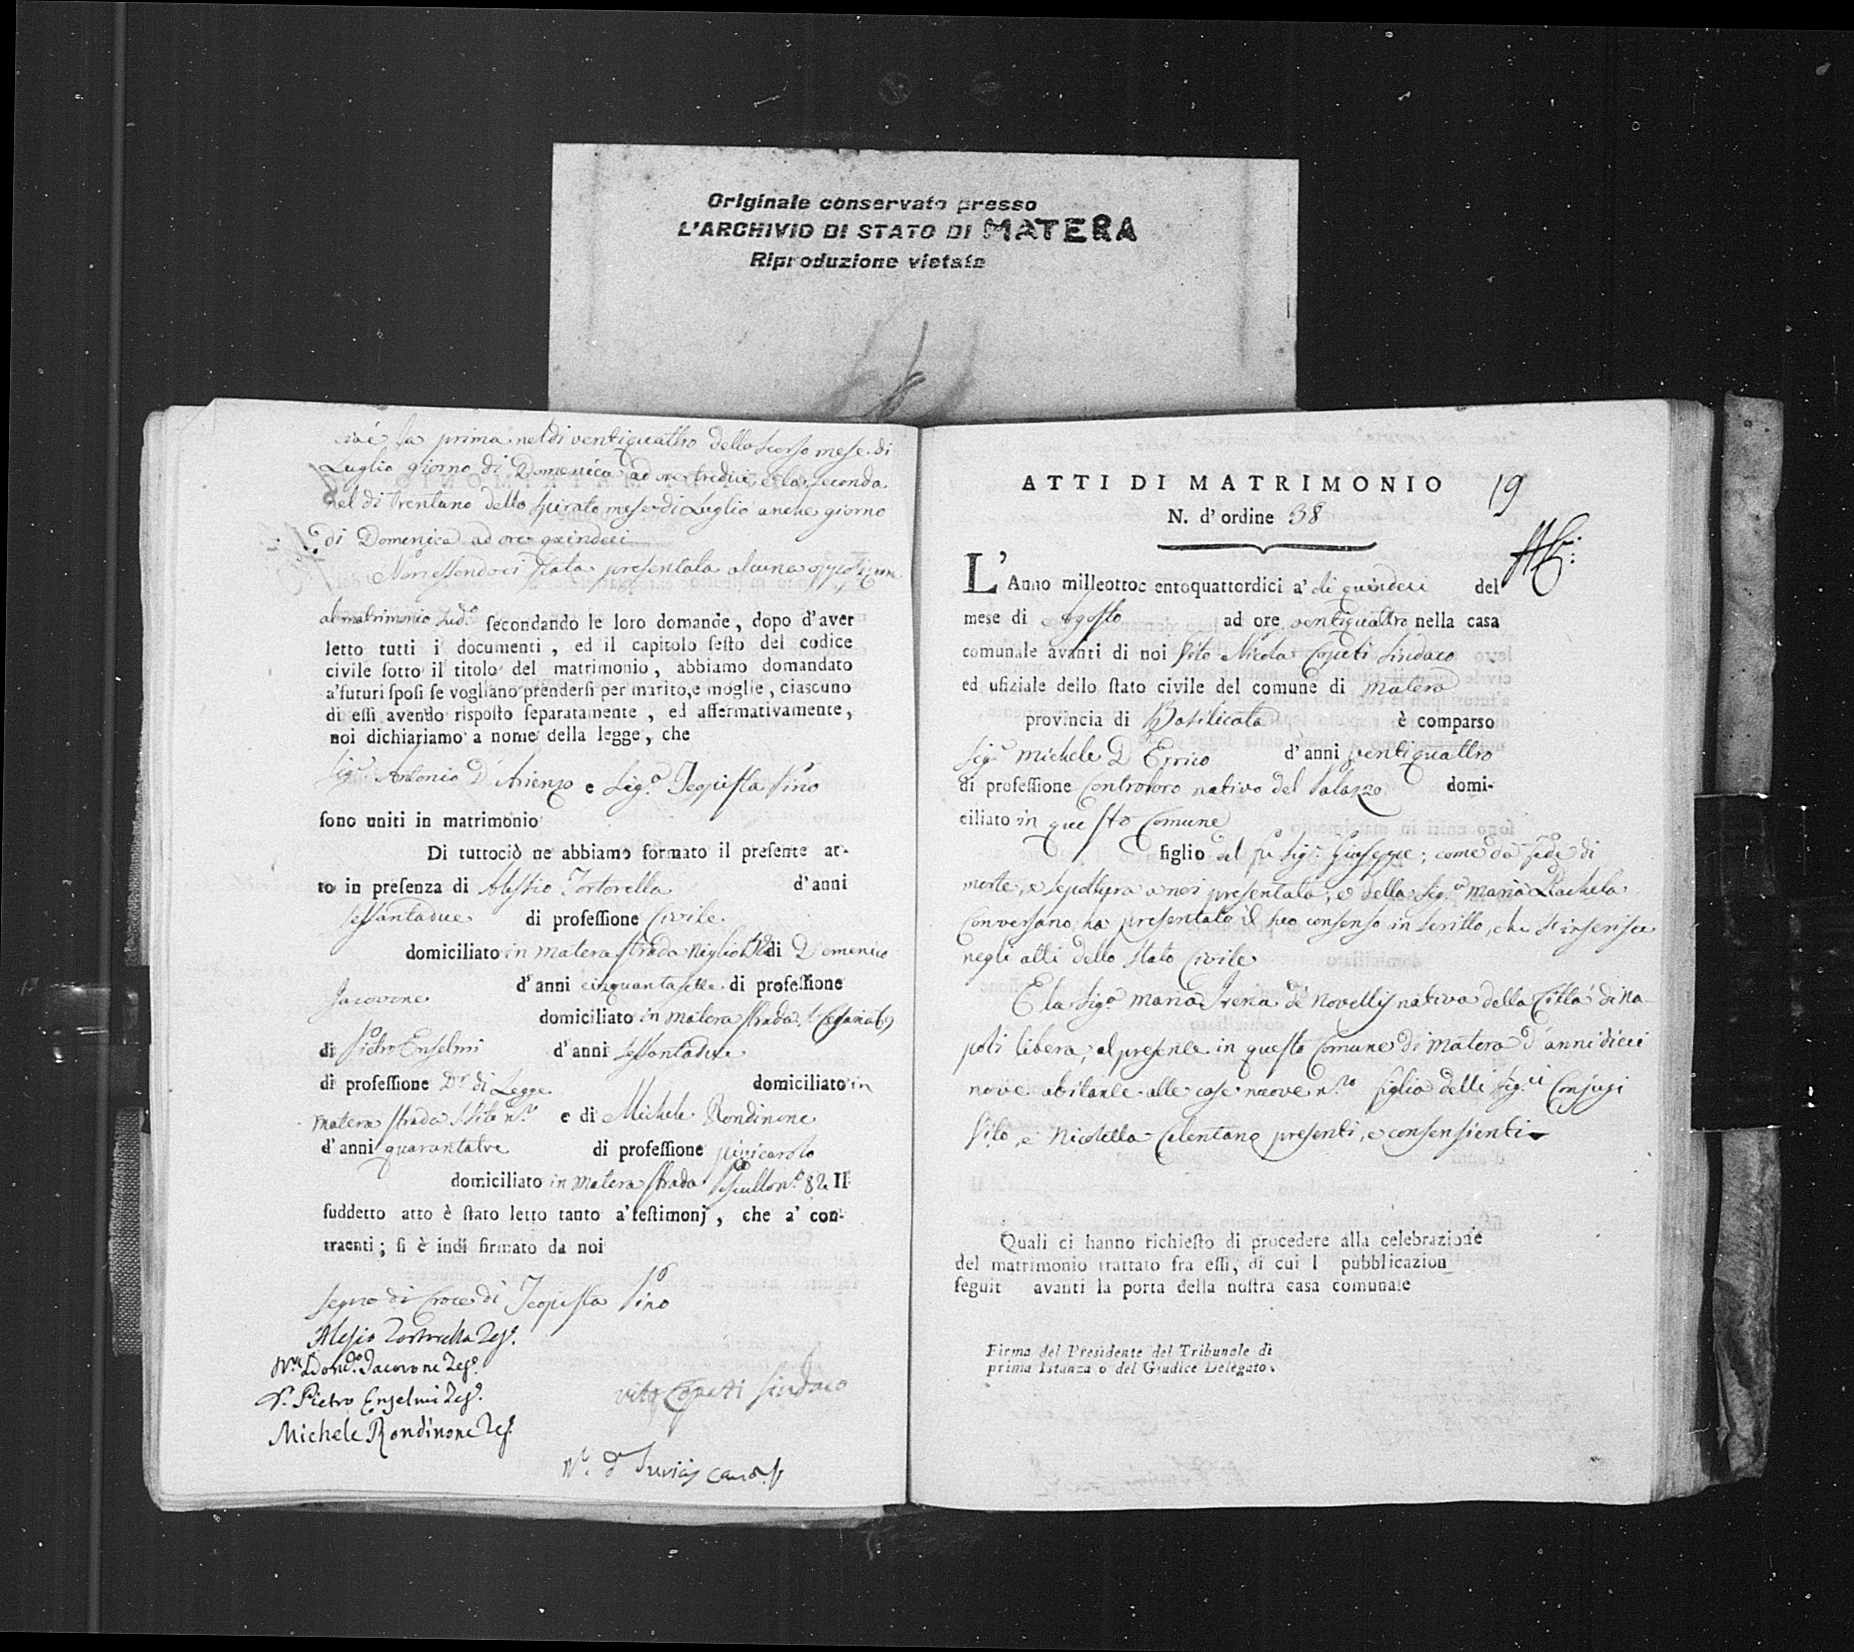 Originale conservato presso
L'ARCHIVIO DI STATO DI MATERA
Riproduzione vietata
cioè la prima nel dì ventiquattro dello scorso mese di
Luglio giorno di Domenica ad ore tredici, e la seconda
nel dì trentuno dello spirato mese di Luglio anche giorno
di Domenica ad ore quindeci
Non essendoci stata presentata alcuna opposizione
al matrimonio sud.º secondando le loro domande, dopo d'aver
letto tutti i documenti, ed il capitolo sesto del codice
civile sotto il titolo del matrimonio, abbiamo domandato
a'futuri sposi se vogliano prendersi per marito, e moglie, ciascuno
di essi avendo risposto separatamente, ed affermativamente,
noi dichiariamo a nome della legge, che
Sig.r Antonio D'Arienzo e Sig.ª Teopista Pino
sono uniti in matrimonio
Di tuttociò ne abbiamo formato il presente at-
to in presenza di Alessio Tortorella d'anni
sessantadue di professione Civile
domiciliato in Matera strada di Domenico
Jacovone d'anni cinquantasette di professione
domiciliato in Matera strada
di Pietro Enselmi d'anni sessantadue
di professione D.r di Legge domiciliato in
Matera strada n.º e di Michele Rondinone
d'anni quarantatre di professione
domiciliato in Matera strada n.º 82 Il
suddetto atto è stato letto tanto a'testimonj, che a' con-
traenti; si è indi firmato da noi
Segno di Croce di Teopista Pino
Alesio Tortorella Tes.º
Dom.º Jacovone Tes.º
D.r Pietro Enselmi Tes.º
Michele Rondinone Tes.
Vito Copeti Sindaco
ATTI DI MATRIMONIO 19
N. d'ordine 38
L'Anno milleottocentoquattordici a' dì quindeci del
mese di Agosto ad ore ventiquattro nella casa
comunale avanti di noi Vito Nicola Copeti Sindaco
ed ufiziale dello stato civile del comune di Matera
provincia di Basilicata è comparso
Sig.r Michele D Errico d'anni ventiquattro
di professione Controloro nativo del Palazzo domi-
ciliato in questo Comune
figlio del fu Sig.r Giuseppe; come da fede di
morte, e sepoltura a noi presentata, e della Sig.ª Maria Rachela
Conversano ha presentato il suo consenso in scritto, che s'inserisce
negli atti dello stato Civile
E la Sig.ª Maria Irena de Novellis nativa della Città di Na
poli libera, al presente in questo Comune di Matera d'anni dieci
nove abitante alle case nuove n.ro figlia delli Sig.ri Conjugi
Vito, e Nicoletta Celentano presenti, e consensienti
Quali ci hanno richiesto di procedere alla celebrazione
del matrimonio trattato fra essi, di cui l pubblicazion
seguit avanti la porta della nostra casa comunale
Firma del Presidente del Tribunale di
prima Istanza o del Giudice Delegato.